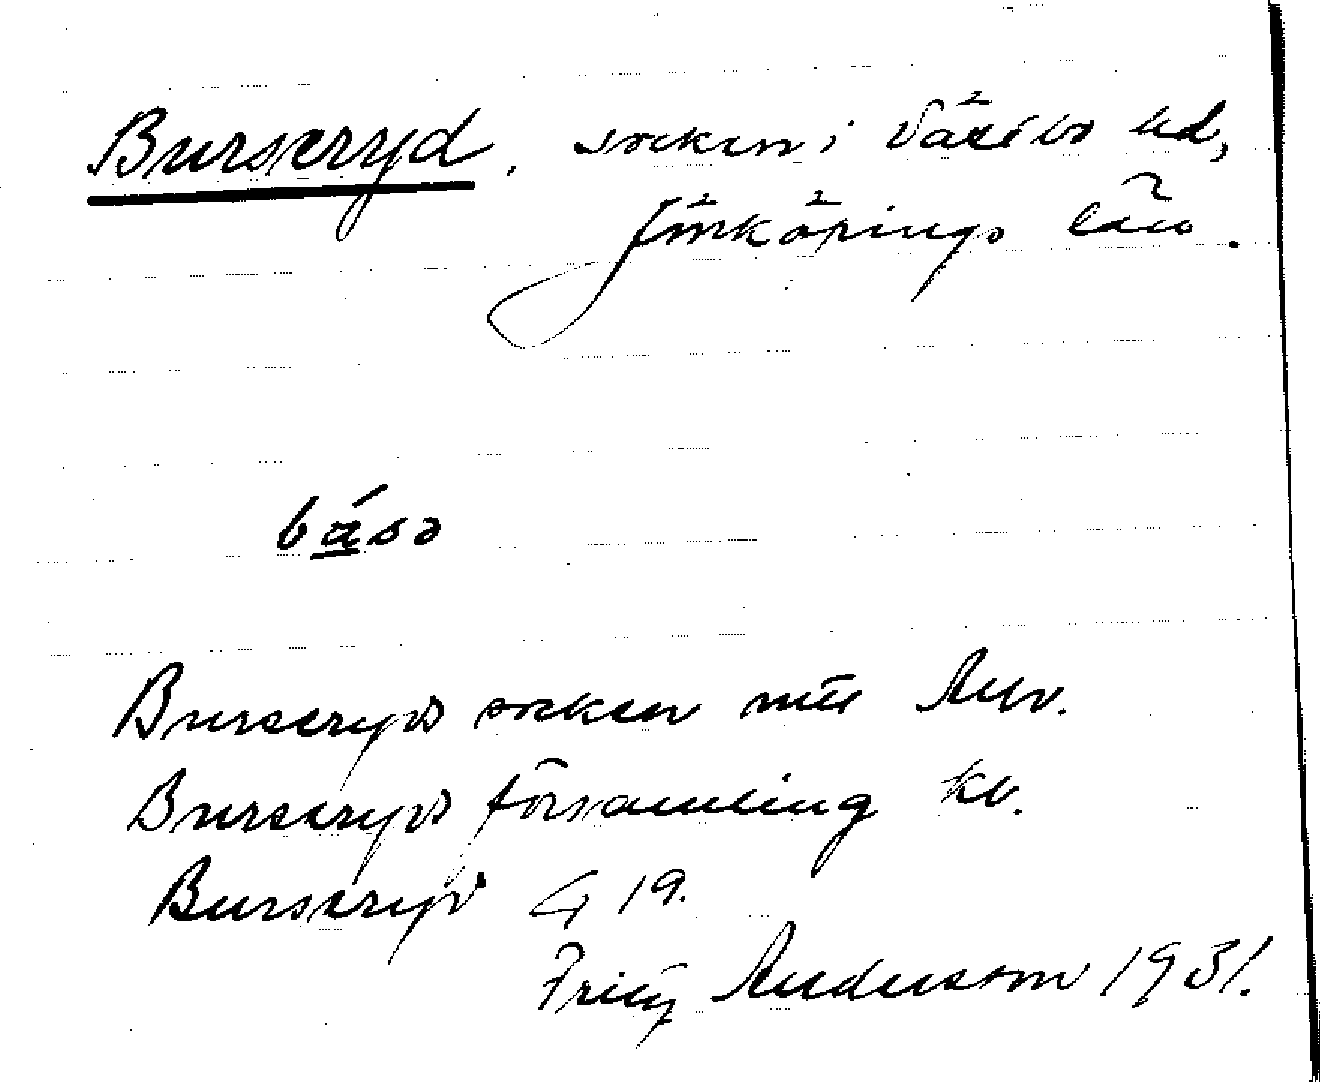 Burseryd, socken i Västbo hd,
Jönköpings län.
básə
Burseryds socken mtl Anv.
Burseryds församling kb.
Burseryd G 19.
Fritz Anderson 1931.